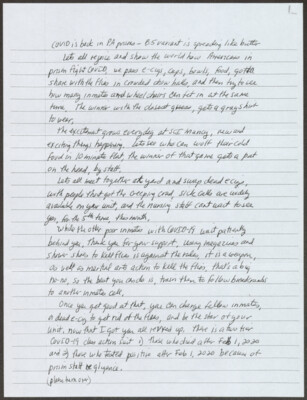 1
COVID is back in PA prisons – B5 variant is spreading like butter
Lets all rejoice and show the world how Americans in
prison fight COVID, we pass e-cigs, cups, bowls, food, gotta
share with the flies in crowded down halls, and then try to see
how many inmates and wheelchairs can fit in at the same
time. The winner with the closest guess, gets a gray shirt
to wear.
The excitement grows everyday at SCI Mahanoy, new and
exciting things happening. Lets see who can wolf their cold
food in 10 minute flat, the winner of that game gets a pat
on the head, by staff.
Lets all meet together all yard and swap dead e-cigs,
with people that got the creeping crud. Sick calls are widely
available on your unit, and the nursing staff cant wait to see
you, for the 5th time, this month,
While the other poor inmates with COVID-19 wait patiently
behind you, thank you for your support. Using magazines and
shower shoes to kill flies is against the rules, it is a weapon,
as well as martial arts action to kill the flies, that's a big
no-no, so the best you can do is, train them to follow breadcrumbs
to another inmates cell.
Once you get good at that, you can change fellow inmates,
a dead e-cig to get rid of the flies, and be the star of your
unit, now that I got you all revved up. There is a two tier
COVID-19 class action suit 1) those who died after Feb 1, 2020
and 2) those who tested positive after Feb 1, 2020 because of
prison staff negligence.
(please turn over)